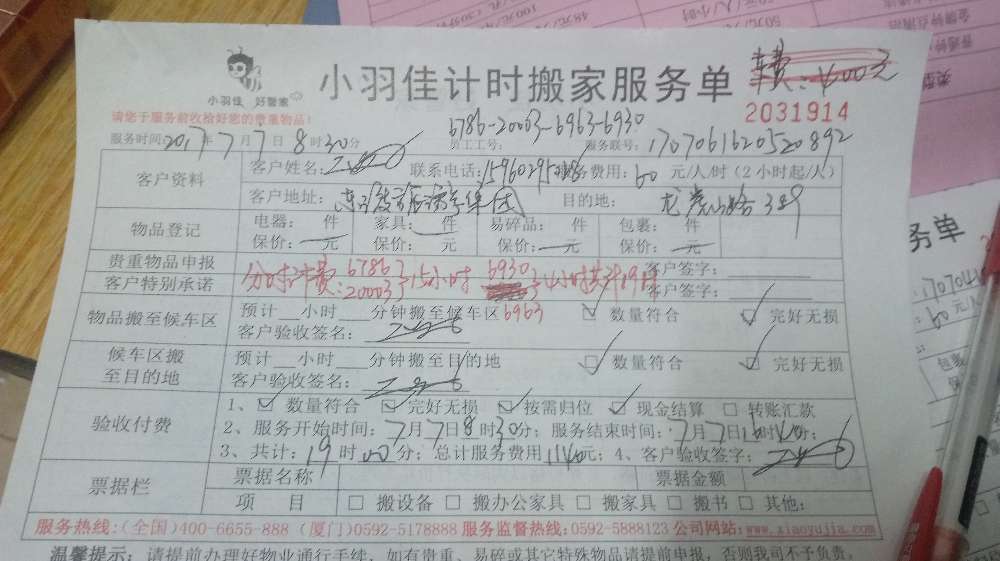 小羽佳计时搬家服务单
车费:400元
小羽佳 好管家
2031914
请您于服务前收拾好您的贵重物品!
6786-20003-6963-6930
服务时间:2017年7月7日8时30分 员工工号: 服务联号:1707061620520892
客户资料 客户姓名: 联系电话: 服务费用:60元/人/时(2小时起/人)
客户地址: 目的地: 龙虎山路
物品登记 电器: 件 家具: 件 易碎品: 件 包裹: 件
保价: 元 保价: 元 保价: 元 保价: 元
贵重物品申报 客户签字:
客户特别承诺 分时计费:6786 20003 15小时 6930 6963 4小时共计19时 客户签字:
物品搬至候车区 预计 小时 分钟搬至候车区 数量符合 完好无损
客户验收签名:
候车区搬至目的地 预计 小时 分钟搬至目的地 数量符合 完好无损
客户验收签名:
验收付费 1、数量符合 完好无损 按需归位 现金结算 转账汇款
2、服务开始时间:7月7日8时30分;服务结束时间:7月7日16时10分;
3、共计:19时00分;总计服务费用1140元;4、客户验收签字:
票据栏 票据名称 票据金额
项 目 搬设备 搬办公家具 搬家具 搬书 其他:
服务热线:(全国)400-6655-888 (厦门)0592-5178888 服务监督热线:0592-5888123 公司网站:www.xiaoyujia.com
温馨提示: 请提前办理好物业通行手续,如有贵重、易碎或其它特殊物品请提前申报,否则我司不予负责。
务单